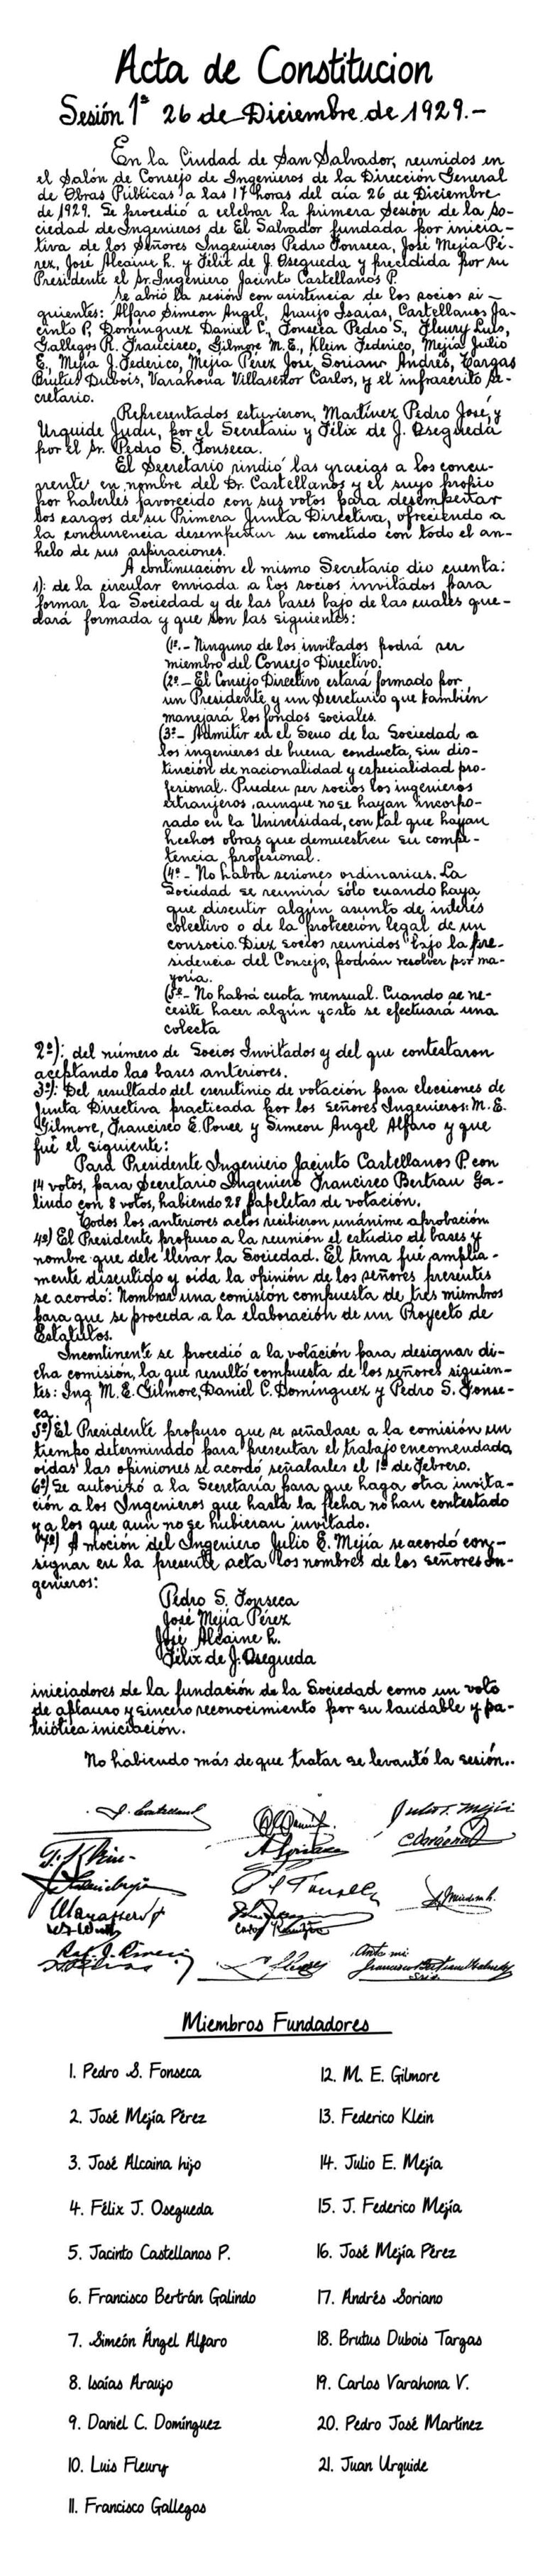 Acta de Constitucion
Sesión 1ª 26 de Diciembre de 1929.-
En la Ciudad de San Salvador, reunidos en
el Salón de Consejo de Ingenieros de la Dirección General
de Obras Públicas a las 17 horas del día 26 de Diciembre
de 1929. Se procedió a celebrar la primera Sesión de la So-
ciedad de Ingenieros de El Salvador fundada por inicia-
tiva de los Señores Ingenieros Pedro Fonseca, José Mejía Pé-
rez, José Alcaine h. y Félix de J. Osegueda y presidida por su
Presidente el Sr. Ingeniero Jacinto Castellanos P.
Se abrió la sesión con asistencia de los socios si-
guientes: Alfaro Simeon Angel, Araujo Isaías, Castellanos Ja-
cinto P, Dominguez Daniel C, Fonseca Pedro S, Fleury Luis,
Gallegos R. Francisco, Gilmore M. E., Klein Federico, Mejía Julio
E., Mejía J. Federico, Mejía Pérez José, Soriano Andrés, Vargas
Brutus Dubois, Varahona Villaseñor Carlos, y el infrascrito Se-
cretario.
Representados estuvieron, Martínez Pedro José, y
Urquide Judu, por el Secretario y Félix de J. Osegueda
por el Sr. Pedro S. Fonseca.
El Secretario rindió las gracias a los concu-
rrente en nombre del Dr. Castellanos y el suyo propio
por haberles favorecido con sus votos para desempeñar
los cargos de su Primera Junta Directiva, ofreciendo a
la concurrencia desempeñar su cometido con todo el an-
helo de sus aspiraciones.
A continuación el mismo Secretario dio cuenta:
1): de la circular enviada a los socios invitados para
formar la Sociedad y de las bases bajo de las cuales que-
dará formada y que son las siguientes:
(1º.- Ninguno de los invitados podrá ser
miembro del Consejo Directivo.
(2º.- El Consejo Directivo estará formado por
un Presidente y un Secretario que también
manejará los fondos sociales.
(3º- Admitir en el Seno de la Sociedad a
los ingenieros de buena conducta, sin dis-
tinción de nacionalidad y especialidad pro-
fesional. Pueden ser socios los ingenieros
extranjeros, aunque no se hayan incorpo-
rado en la Universidad, con tal que hayan
hechos obras que demuestren su compe-
tencia profesional.
(4º- No habrá sesiones ordinarias. La
Sociedad se reunirá sólo cuando haya
que discutir algún asunto de interés
colectivo o de la protección legal de un
consocio. Diez socios reunidos bajo la pre-
sidencia del Concejo, podrán resolver por ma-
yoría.
(5º- No habrá cuota mensual. Cuando se ne-
cesite hacer algún gasto se efectuará una
colecta
2º): del número de Socios Invitados y del que contestaron
aceptando las bases anteriores.
3º): Del resultado del escrutinio de votación para elecciones de
Junta Directiva practicada por los señores Ingenieros: M. E.
Gilmore, Francisco E. Ponce y Simeon Angel Alfaro y que
fué el siguiente:
Para Presidente Ingeniero Jacinto Castellanos P. con
14 votos, para Secretario Ingeniero Francisco Bertran Ga-
lindo con 8 votos, habiendo 28 papeletas de votación.
Todos los anteriores actos recibieron unánime aprobación
4º) El Presidente propuso a la reunión el estudio de bases y
nombre que debe llevar la Sociedad. El tema fué amplia-
mente discutido y oída la opinión de los señores presentes
se acordó: Nombrar una comisión compuesta de tres miembros
para que se proceda a la elaboración de un Proyecto de
Estatutos.
Incontinenti se procedió a la votación para designar di-
cha comisión, la que resultó compuesta de los señores siguien-
tes: Ing M. E. Gilmore, Daniel C. Domínguez y Pedro S. Fonse-
ca.
5º) El Presidente propuso que se señalase a la comisión un
tiempo determinado para presentar el trabajo encomendado,
oídas las opiniones se acordó señalarles el 1º de Febrero.
6º) Se autorizó a la Secretaría para que haga otra invita-
ción a los Ingenieros que hasta la fecha no han contestado
y a los que aun no se hubieran invitado.
7º) A moción del Ingeniero Julio E. Mejía se acordó con-
signar en la presente acta los nombres de los señores In-
genieros:
Pedro S. Fonseca
José Mejía Pérez
José Alcaine h.
Félix de J. Osegueda
iniciadores de la fundación de la Sociedad como un voto
de aplauso y sincero reconocimiento por su laudable y pa-
triótica iniciación.
No habiendo más de que tratar se levantó la sesión..
Miembros Fundadores
1. Pedro S. Fonseca
2. José Mejía Pérez
3. José Alcaina hijo
4. Félix J. Osegueda
5. Jacinto Castellanos P.
6. Francisco Bertrán Galindo
7. Simeón Ángel Alfaro
8. Isaías Araujo
9. Daniel C. Domínguez
10. Luis Fleury
11. Francisco Gallegos
12. M. E. Gilmore
13. Federico Klein
14. Julio E. Mejía
15. J. Federico Mejía
16. José Mejía Pérez
17. Andrés Soriano
18. Brutus Dubois Targas
19. Carlos Varahona V.
20. Pedro José Martínez
21. Juan Urquide